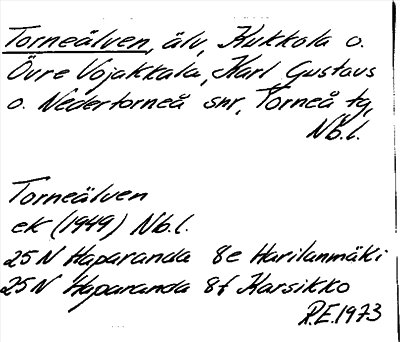 Torneälven, älv, Kukkola o.
Övre Vojakkala, Karl Gustavs
o. Nedertorneå snr, Torneå tg,
Nb.l.
Torneälven
ek (1949) Nb.l.
25N Haparanda 8e Harilanmäki
25N Haparanda 8f Karsikko
R.E.1973